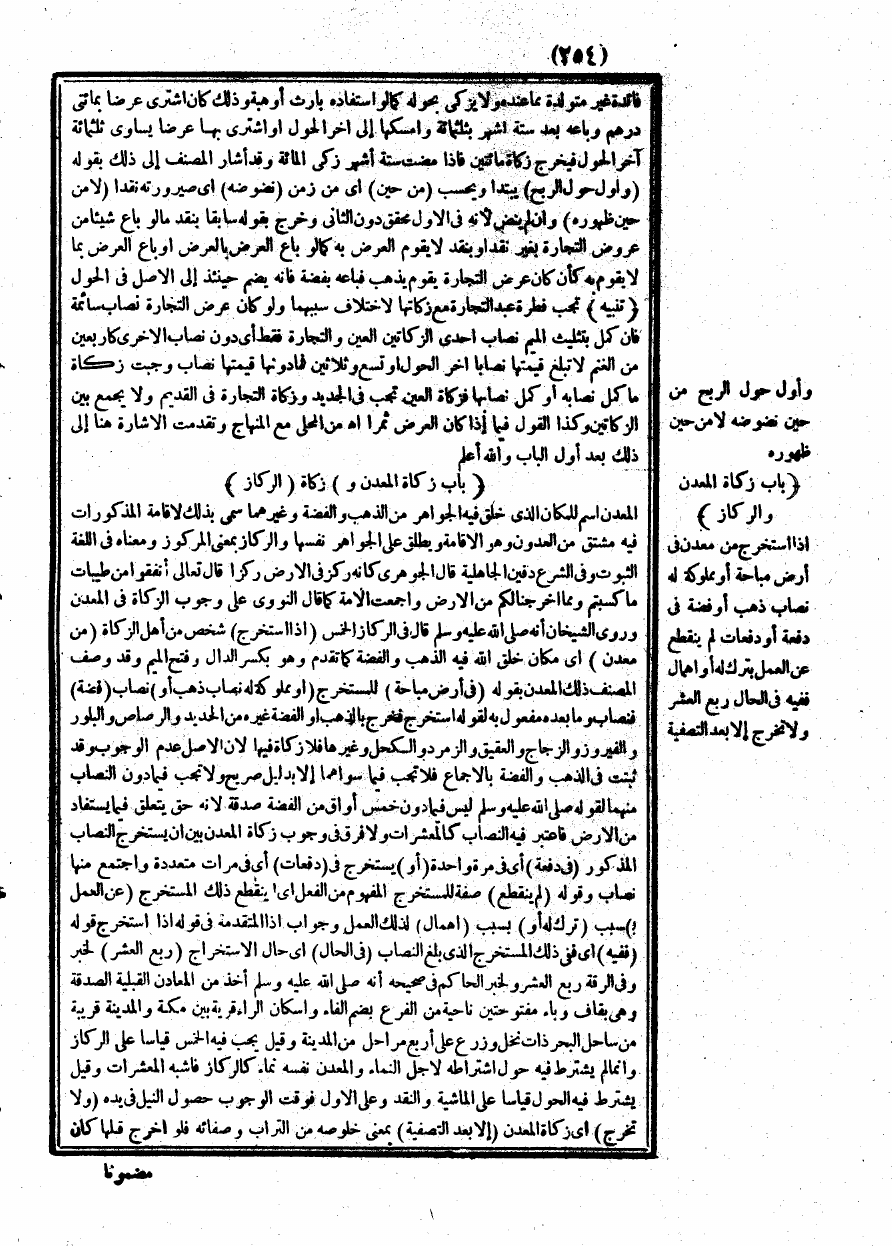 (٢٥٤)
فائدة غير متولدة مما عنده ولا يزكى بحوله كمالو استفاده بارث أو هبة وذلك كان اشترى عرضا بمائتى
درهم وباعه بعد ستة اشهر بثلثمائة وامسكها إلى اخر الحول او اشترى بها عرضا يساوى ثلثمائة
آخر الحول فيخرج زكاة مائتين فاذا مضت ستة أشهر زكى المائة وقد أشار المصنف إلى ذلك بقوله
(وأول حول الربح) يبتدا ويحسب (من حين) اى من زمن (نضوضه) اى صيرورته نقدا (لا من
حين ظهوره) وان لم ينض لأنه فى الاول محقق دون الثانى وخرج بقوله سابقا بنقد مالو باع شيئا من
عروض التجارة بغير نقد او بنقد لا يقوم العرض به كمالو باع العرض بالعرض او باع العرض بما
لا يقوم به كأن كان عرض التجارة يقوم بذهب فباعه بفضة فانه يضم حينئذ إلى الاصل فى الحول
﴿ تنبيه ﴾ تجب فطرة عبد التجارة مع زكاتها لاختلاف سببهما ولو كان عرض التجارة نصاب سائمة
فان كمل بتثليث الميم نصاب احدى الزكاتين العين والتجارة فقط أى دون نصاب الاخرى كاربعين
من الغنم لا تبلغ قيمتها نصابا اخر الحول او تسع وثلاثين فمادونها قيمتها نصاب وجبت زكاة
ما كمل نصابه أو كمل نصابهما فزكاة العين تجب فى الجديد وزكاة التجارة فى القديم ولا يجمع بين
الزكاتين وكذا القول فيما إذا كان العرض ثمرا اه من المحلى مع المنهاج وتقدمت الاشارة هنا إلى
ذلك بعد أول الباب والله أعلم
﴿ باب زكاة المعدن و ﴾ زكاة ( الركاز ﴾
المعدن اسم للمكان الذى خلق فيه الجواهر من الذهب والفضة وغيرهما سمى بذلك لاقامة المذكورات
فيه مشتق من العدون وهو الاقامة ويطلق على الجواهر نفسها والركاز بمعنى المركوز ومعناه فى اللغة
الثبوت وفى الشرع دفين الجاهلية قال الجوهرى كانه ركز فى الارض ركزا قال تعالى أنفقوا من طيبات
ما كسبتم ومما اخرجنا لكم من الارض واجمعت الامة كما قال النووى على وجوب الزكاة فى المعدن
وروى الشيخان أنه صلى الله عليه وسلم قال فى الركاز الخمس (اذا استخرج) شخص من أهل الزكاة (من
معدن ) اى مكان خلق الله فيه الذهب والفضة كما تقدم وهو بكسر الدال وفتح الميم وقد وصف
المصنف ذلك المعدن بقوله (فى أرض مباحة) للمستخرج (او مملوكة له نصاب ذهب أو) نصاب (فضة)
فنصاب وما بعده مفعول به لقوله استخرج فخرج بالذهب او الفضة غيره من الحديد والرصاص والبلور
والفيروزو الزجاج والعقيق والزمرد والكحل وغيرها فلا زكاة فيها لان الاصل عدم الوجوب وقد
ثبتت فى الذهب والفضة بالاجماع فلا تجب فيما سواهما إلا بدليل صريح ولا تجب فيما دون النصاب
منهما لقوله صلى الله عليه وسلم ليس فيما دون خمس أواق من الفضة صدقة لانه حق يتعلق فيما يستفاد
من الارض فاعتبر فيه النصاب كالمعشرات ولا فرق فى وجوب زكاة المعدن بين ان يستخرج النصاب
المذكور (فى دفعة) أى فى مرة واحدة (أو) يستخرج فى (دفعات) أى فى مرات متعددة واجتمع منها
نصاب وقوله (لم ينقطع) صفة للمستخرج المفهوم من الفعل اى ينقطع ذلك المستخرج (عن العمل
ب)سبب (ترك له أو) بسبب (اهمال) لذلك العمل وجواب اذا المتقدمة فى قوله اذا استخرج قوله
(ففيه) اى فى ذلك المستخرج الذى بلغ النصاب (فى الحال) اى حال الاستخراج (ربع العشر) لخبر
وفى الرقة ربع العشر ولخبر الحاكم فى صحيحه أنه صلى الله عليه وسلم أخذ من المعادن القبلية الصدقة
وهى بقاف وباء مفتوحتين ناحية من الفرع بضم الفاء واسكان الراء قرية بين مكة والمدينة قريبة
من ساحل البحر ذات نخل وزرع على أربع مراحل من المدينة وقيل يجب فيه الخمس قياسا على الركاز
وانما لم يشترط فيه حول اشتراطه لاجل النماء والمعدن نفسه نماء كالركاز فاشبه المعشرات وقيل
يشترط فيه الحول قياسا على الماشية والنقد وعلى الاول فوقت الوجوب حصول النيل فى يده (ولا
تخرج) اى زكاة المعدن (إلا بعد التصفية) بمعنى خلوصه من التراب وصفائه فلو اخرج قبلها كان
مضمونا
وأول حول الربح من
حين نضوضه لا من حين
ظهوره
﴿ باب زكاة المعدن
والركاز ﴾
اذا استخرج من معدن فى
أرض مباحة أو مملوكة له
نصاب ذهب أو فضة فى
دفعة أو دفعات لم ينقطع
عن العمل بترك له أو اهمال
ففيه فى الحال ربع العشر
ولا تخرج إلا بعد التصفية